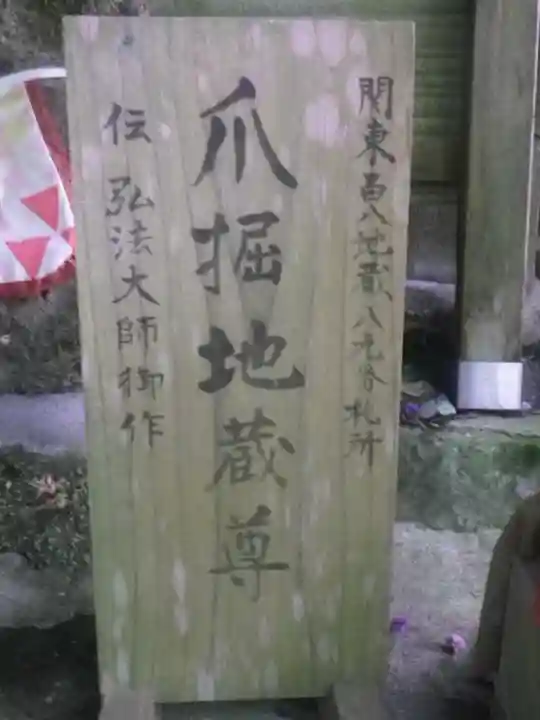 関東百八地蔵八九番札所
爪掘地蔵尊
伝 弘法大師御作